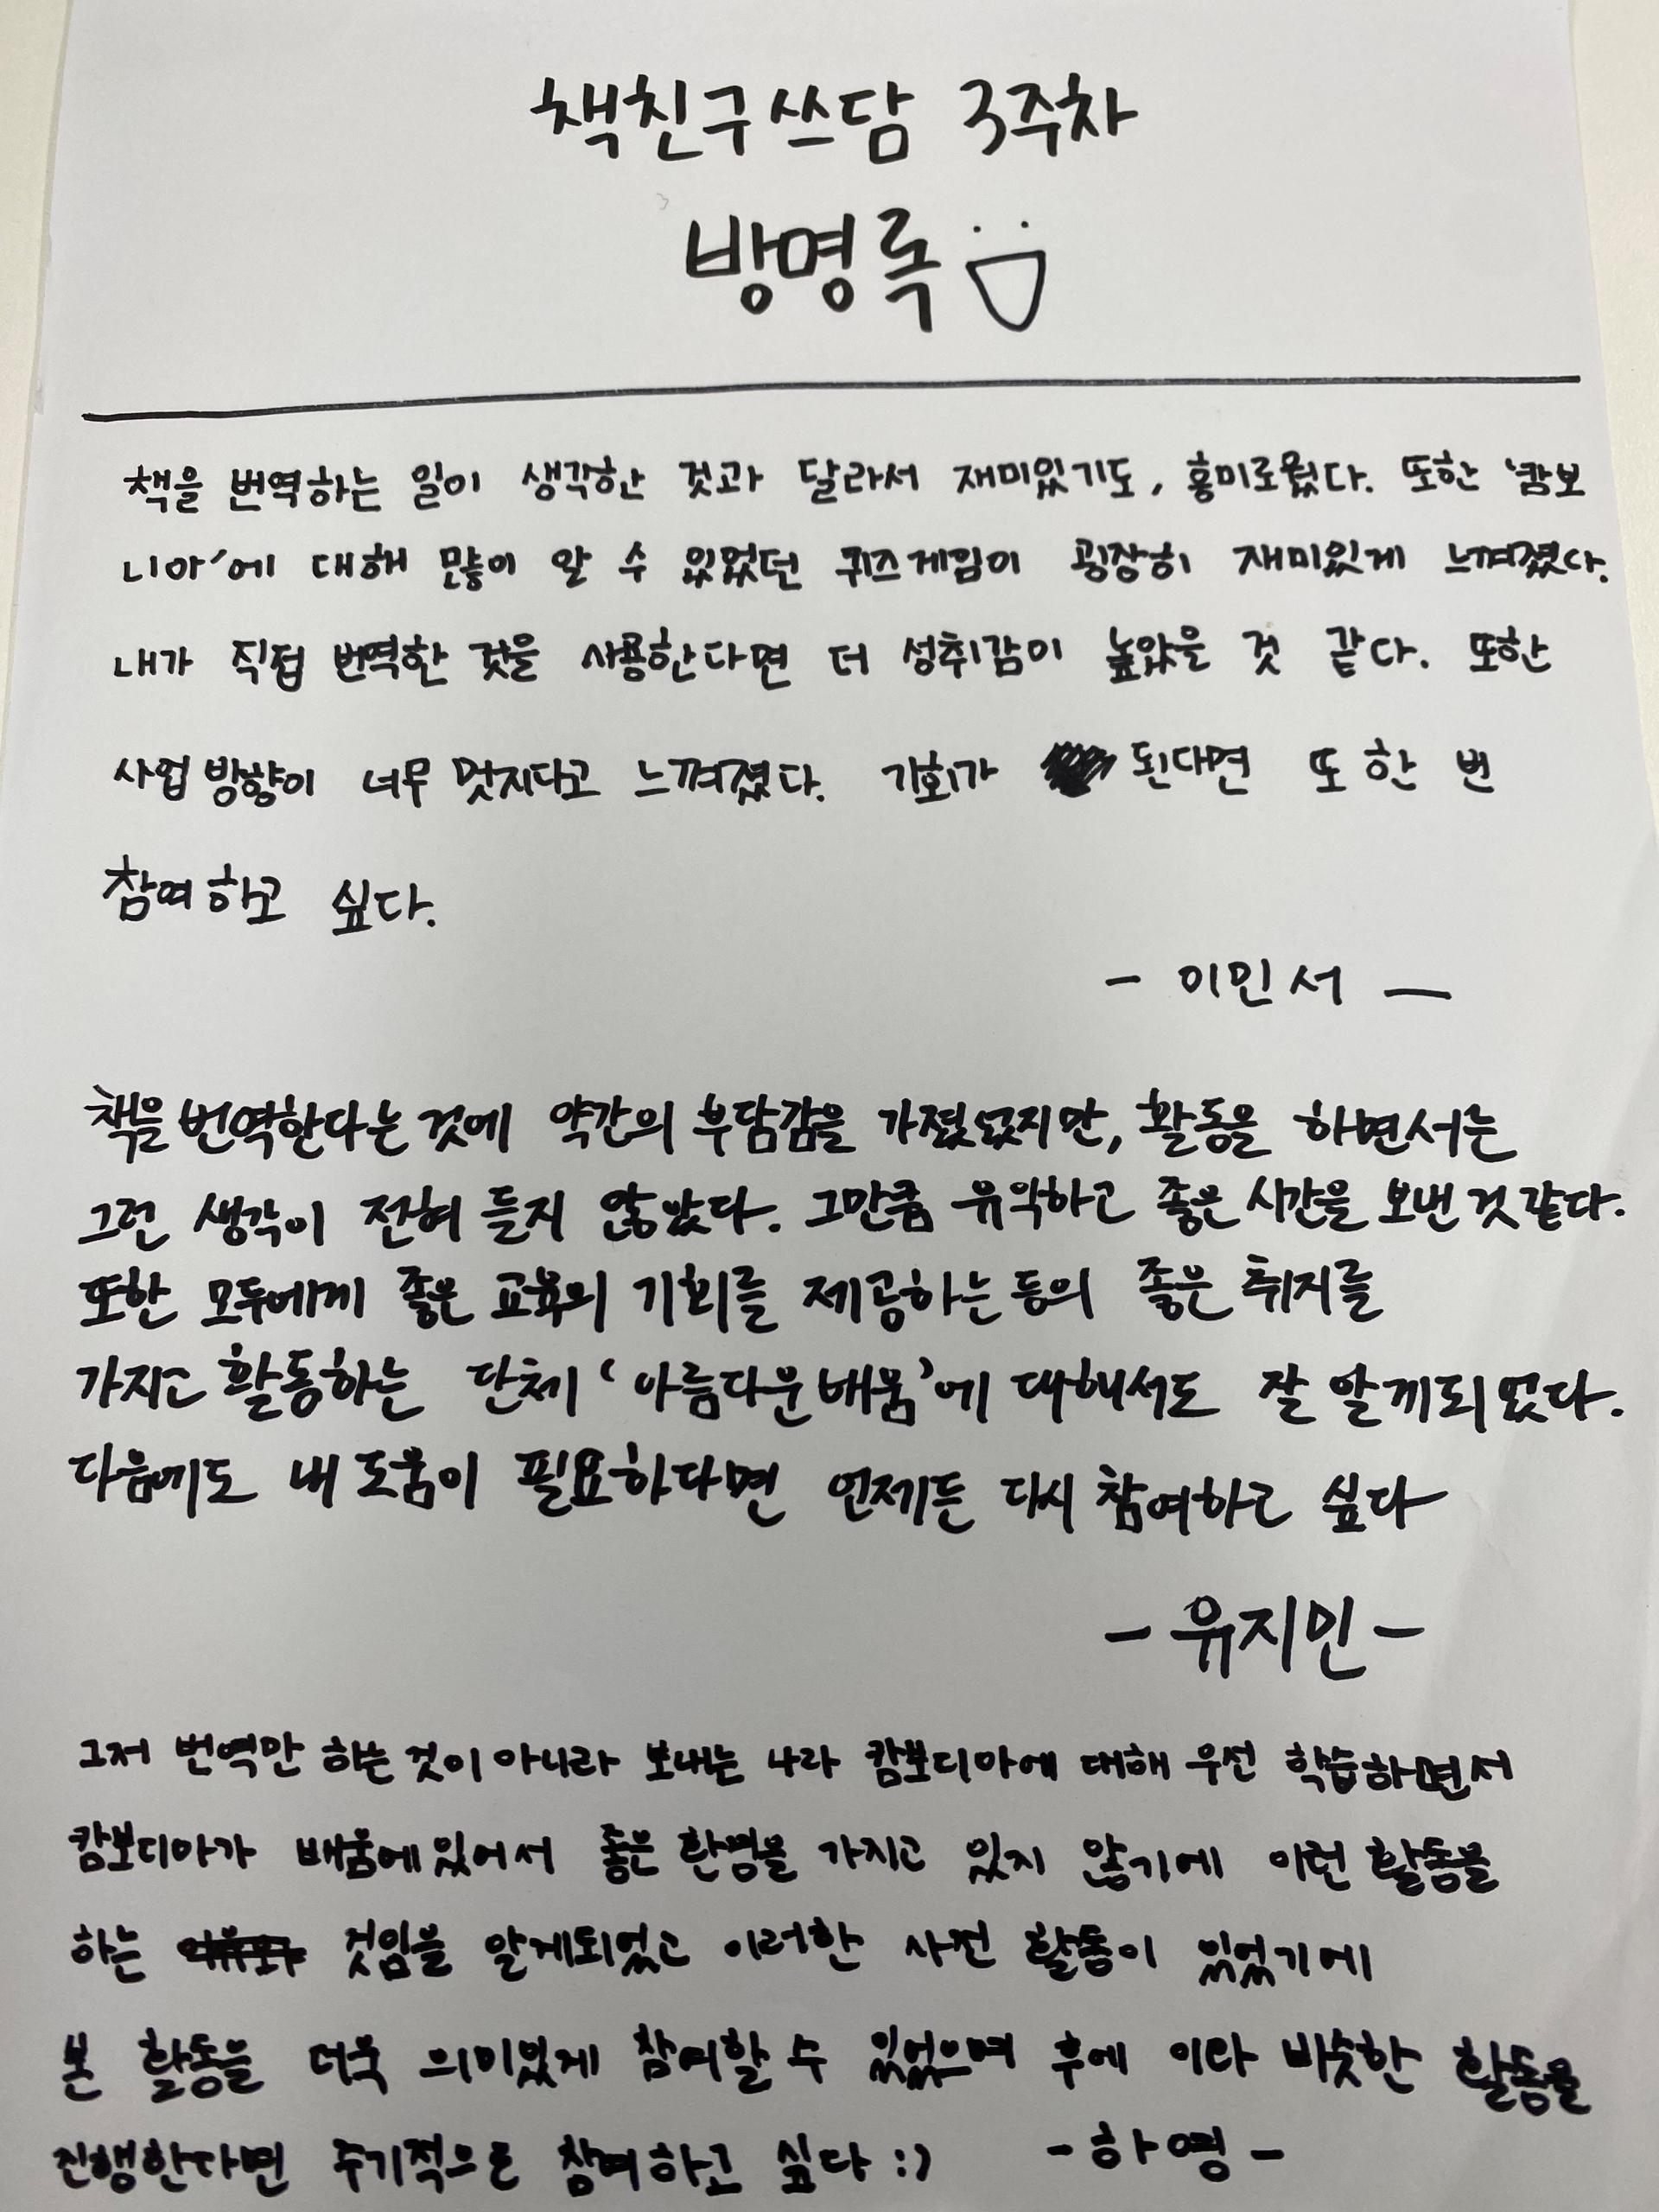 책친구쓰담 3주차
방명록
책을 번역하는 일이 생각한 것과 달라서 재미있기도, 흥미로웠다. 또한 '캄보
니아'에 대해 많이 알 수 있었던 퀴즈게임이 굉장히 재미있게 느껴졌다.
내가 직접 번역한 것을 사용한다면 더 성취감이 높았을 것 같다. 또한
사업 방향이 너무 멋지다고 느껴졌다. 기회가 된다면 또 한 번
참여하고 싶다.
- 이민서 -
책을 번역한다는 것에 약간의 부담감을 가졌었지만, 활동을 하면서는
그런 생각이 전혀 들지 않았다. 그만큼 유익하고 좋은 시간을 보낸 것 같다.
또한 모두에게 좋은 교육의 기회를 제공하는 등의 좋은 취지를
가지고 활동하는 단체 '아름다운배움'에 대해서도 잘 알게되었다.
다음에도 내 도움이 필요하다면 언제든 다시 참여하고 싶다
- 유지민 -
그저 번역만 하는 것이 아니라 보내는 나라 캄보디아에 대해 우선 학습하면서
캄보디아가 배움에있어서 좋은 환경을 가지고 있지 않기에 이런 활동을
하는 것임을 알게되었고 이러한 사전 활동이 있었기에
본 활동을 더욱 의미있게 참여할 수 있었으며 후에 이와 비슷한 활동을
진행한다면 주기적으로 참여하고 싶다 :) - 하영 -